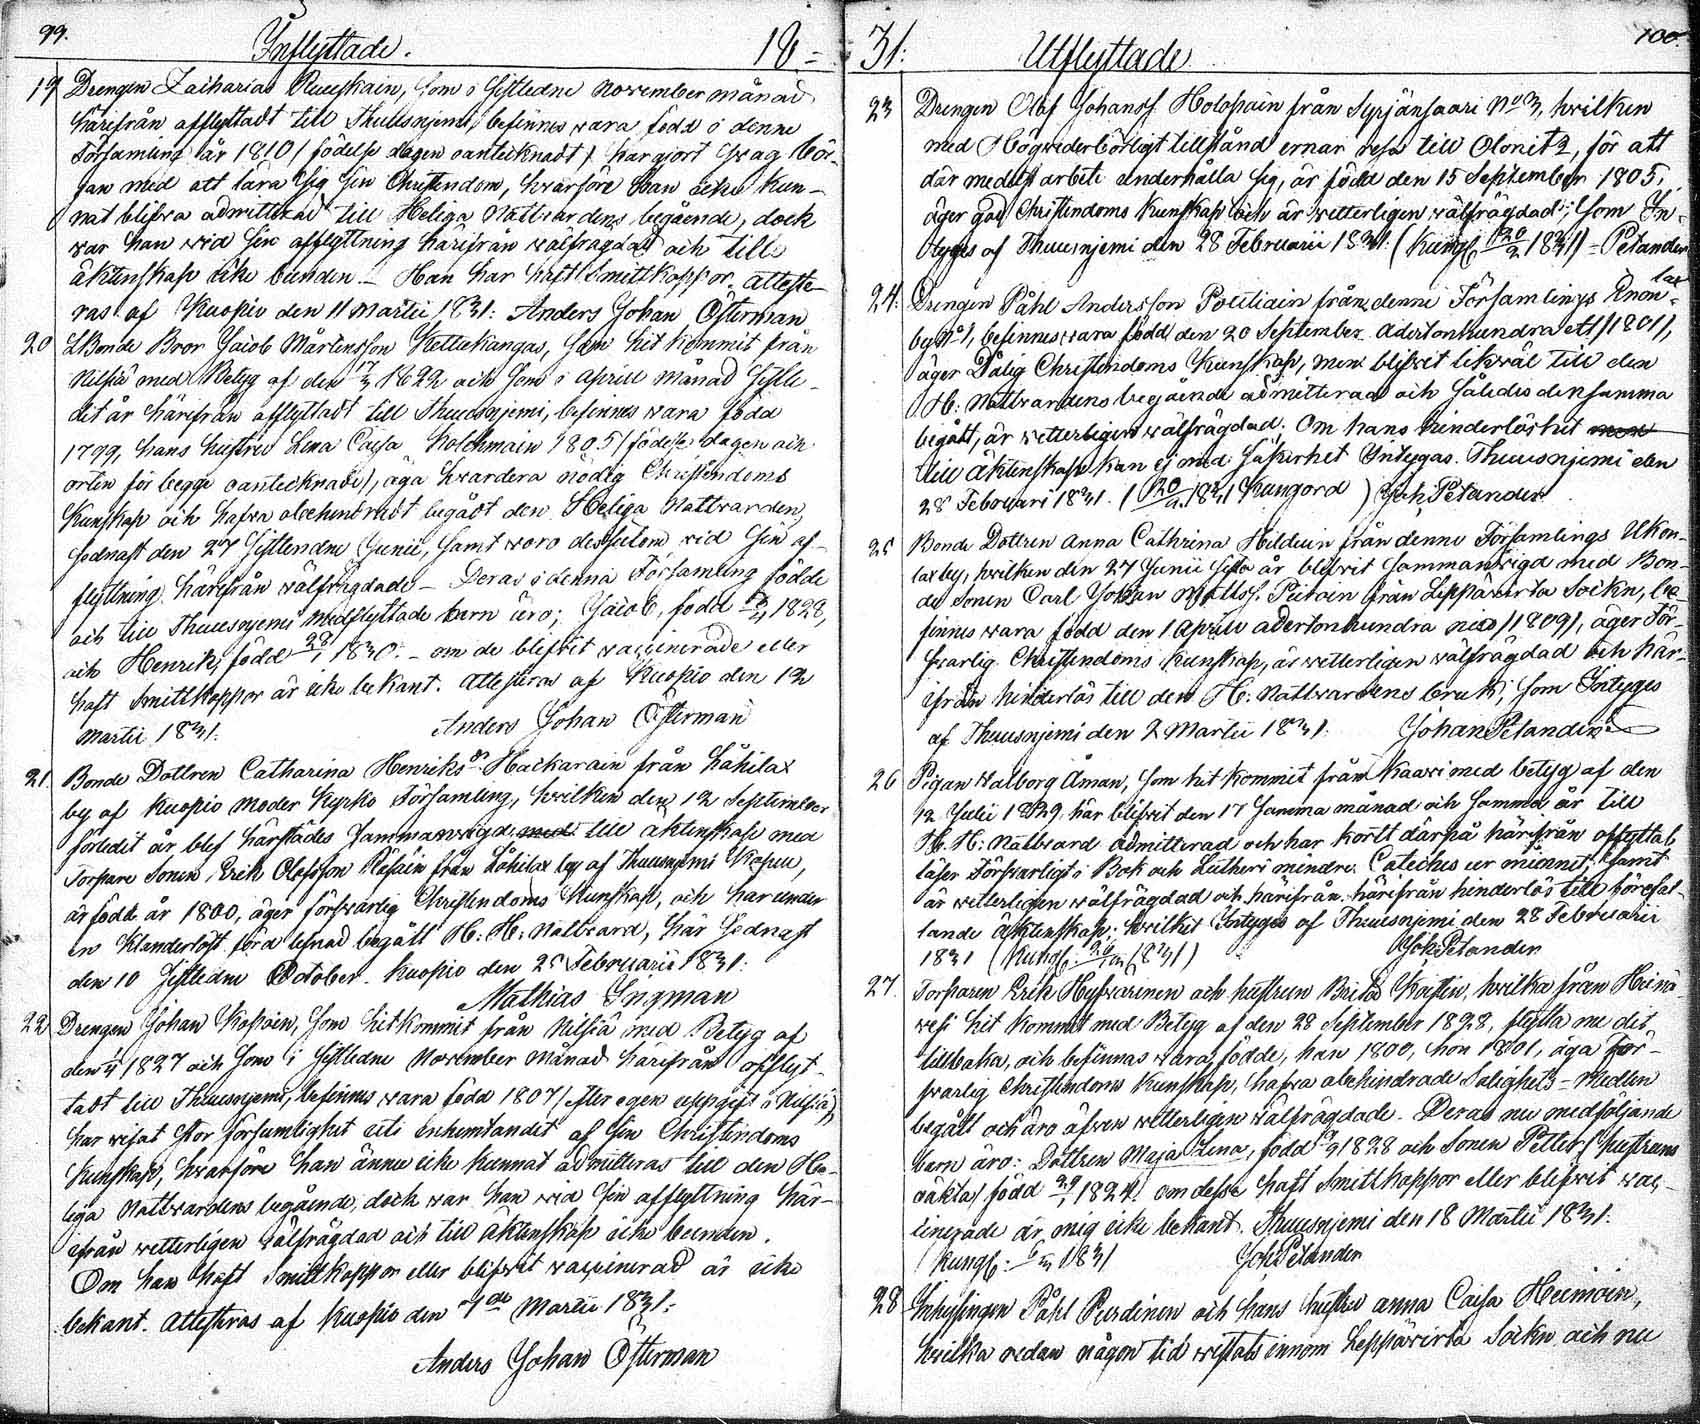 99.
Inflyttade.
18=
19 Drengen Zacharias Ruuskain, som i sistledne November månad
härifrån afflyttadt till Thuusnjemi, befinnes vara född i denne
Församling år 1810 / födelse dagen oantecknadt / har gjort svag bör-
jan med att lära sig sin Christendom, hwarföre han icke kun-
nat blifwa admitterad till Heliga Nattvardens begående, dock
war han wid sin afflyttning härifrån wälfrägdad och till
äktenskap icke bunden. - Han har haft Smittkoppor. atteste-
ras af Kuopio den 11 Martii 1831: Anders Johan Österman
20 Bonde Bror Jacob Mårtensson Kettukangas, som hit kommit från
Nilsiä med Betyg af den 1822 och som i April månad sistle-
det år härifrån afflyttadt till Thuusnjemi, befinnes wara född
1799, hans hustru Lena Caisa Kolehmain 1805 / födelse dagen och
orten för begge oantecknade /, äga hwardera nödig Christendoms
Kunskap och hafwa obehindradt begådt den Heliga Nattvarden,
sednast den 27 sistlendne Junii, samt woro dessutom wid sin af-
flyttning härifrån wälfrägdade - Deras i denna Församling födde
och till Thuusnjemi medflyttade barn äro; Jacob, född 1828,
och Henrik, född 1830. - om de blifwit vaccinerade eller
haft Smittkoppor är icke bekant. Attesteras af Kuopio den 12
Martii 1831. Anders Johan Österman
21. Bonde Dottren Catharina Henriksdr. Hackarain från Låhilax
by af Kuopio Moder Kyrko Församling, hwilken den 12 September
förledit år blef härstädes Sammanwigd till äktenskap med
Torpare Sonen, Erik Olofsson från Låhilax by af Thuusnjemi Kapell,
är född år 1800, äger förswarlig Christendoms Kunskap, och har under
en Klanderlöst förd lefnad begått H: H: Nattvard, här Sednast
den 10 sistledne October. Kuopio den 25 Februarii 1831:
Mathias Ingman
22 Drengen Johan Kopoin, som hitkommit från Nilsiä med Betyg af
den 1827 och som i sistledne November månad härifrån afflyt-
tadt till Thuusnjemi, befinnes wara född 1807 / efter egen uppgift i Nilsiä /,
har wisat stor försumlighet uti inhemtandet af sin Christendoms
Kunskap, hwarföre han ännu icke kunnat admitteras till den He-
liga Nattwardens begående, dock war han wid sin afflyttning här-
ifrån wetterligen wälfrägdad och till äktenskap icke bunden.
Om han haft Smittkoppor eller blifwit vaccinerad är icke
bekant. Attesteras af Kuopio den 7de Martii 1831:
Anders Johan Österman
31:
Utflyttade
100.
23 Drengen Olof Johanss. Holopain från Syrjänsaari No 3, hwilken
med Högwederbörligt tillstånd ernar resa till Olonitz, för att
där medelst arbete underhålla sig, är född den 15 September 1805,
äger god Christendoms Kunskap och är wetterligen wälfrägdad; som In-
tyges af Thuusnjemi den 28 Februarii 1831. (Kungj. 20/2 1831) - Petander
24: Drengen Påhl Andersson Poutiain från denne Församlings Enon-
lax
by No 1, befinnes wara född den 20 September adertonhundra ett / 1801 /,
äger Dålig Christendoms Kunskap, men blifwit lekwäl till den
H: Nattvardens begående admitterad och Således densamma
begått, är wetterligen wälfrägdad. Om hans hinderlöshet
till äktenskap kan ej med Säkerhet Intygas. Thuusnjemi den
28 Februari 1831. (20/2 1831 Kungord) Joh. Petander.
25 Bonde Dottren Anna Cathrina Hilden från denne Församlings Ukon-
lax by, hwilken den 27 Junii sista år blifwit Sammanwigd med Bon-
de Sonen Carl Johan från Leppäwirta Sockn, be-
finnes wara född den 1 April adertonhundra nio / 1809 /, äger För-
swarlig Christendoms Kunskap, är wetterligen wälfrägdad och här-
ifrån hinderlös till den H: Nattvardens bruk; som Intyges
af Thuusnjemi den 2 Martii 1831. Johan Petander
26 Pigan Walborg Åman, som hit kommit från Kaawi med betyg af den
12 Julii 1829 har blifwit den 17 Samma månad och Samma år till
H. H: Nattvard admitterad och har kort därpå härifrån afflyttat,
läser Förswarligt i Bok och Lutheri mindre Cateches ur minnet, samt
är wetterligen wälfrägdad och härifrån härifrån hinderlös till förefal-
lande äktenskap; hwilket Intyges af Thuusnjemi den 28 Februarii
1831 Joh. Petander
27. Torparen Erik Hyfwarinen och hustrun Brita Koistin, hwilka från Heinä
wesi hit kommit med Betyg af den 28 September 1828, flytta nu dit
tillbaka, och befinnas wara födde, han 1800, hon 1801, äga för-
swarlig Christendoms Kunskap, hafwa obehindrade Salighets-Medlen
begått och äro äfwen wetterligen wälfrägdade. Deras nu medföljande
barn äro: Dottren Maja Lena, född 1828 och Sonen Petter / hustruns
oäkta / född 1824. om desse haft Smittkoppor eller blifwit vac-
cinerade är mig icke bekant. Thuusnjemi den 18 Martii 1831.
Kungj: 1831 Joh Petander
28 Inhysingen Påhl Purdinen och hans hustru Anna Caisa Heimoin,
hwilka redan någon tid wistats innom Leppäwirta Sockn och nu